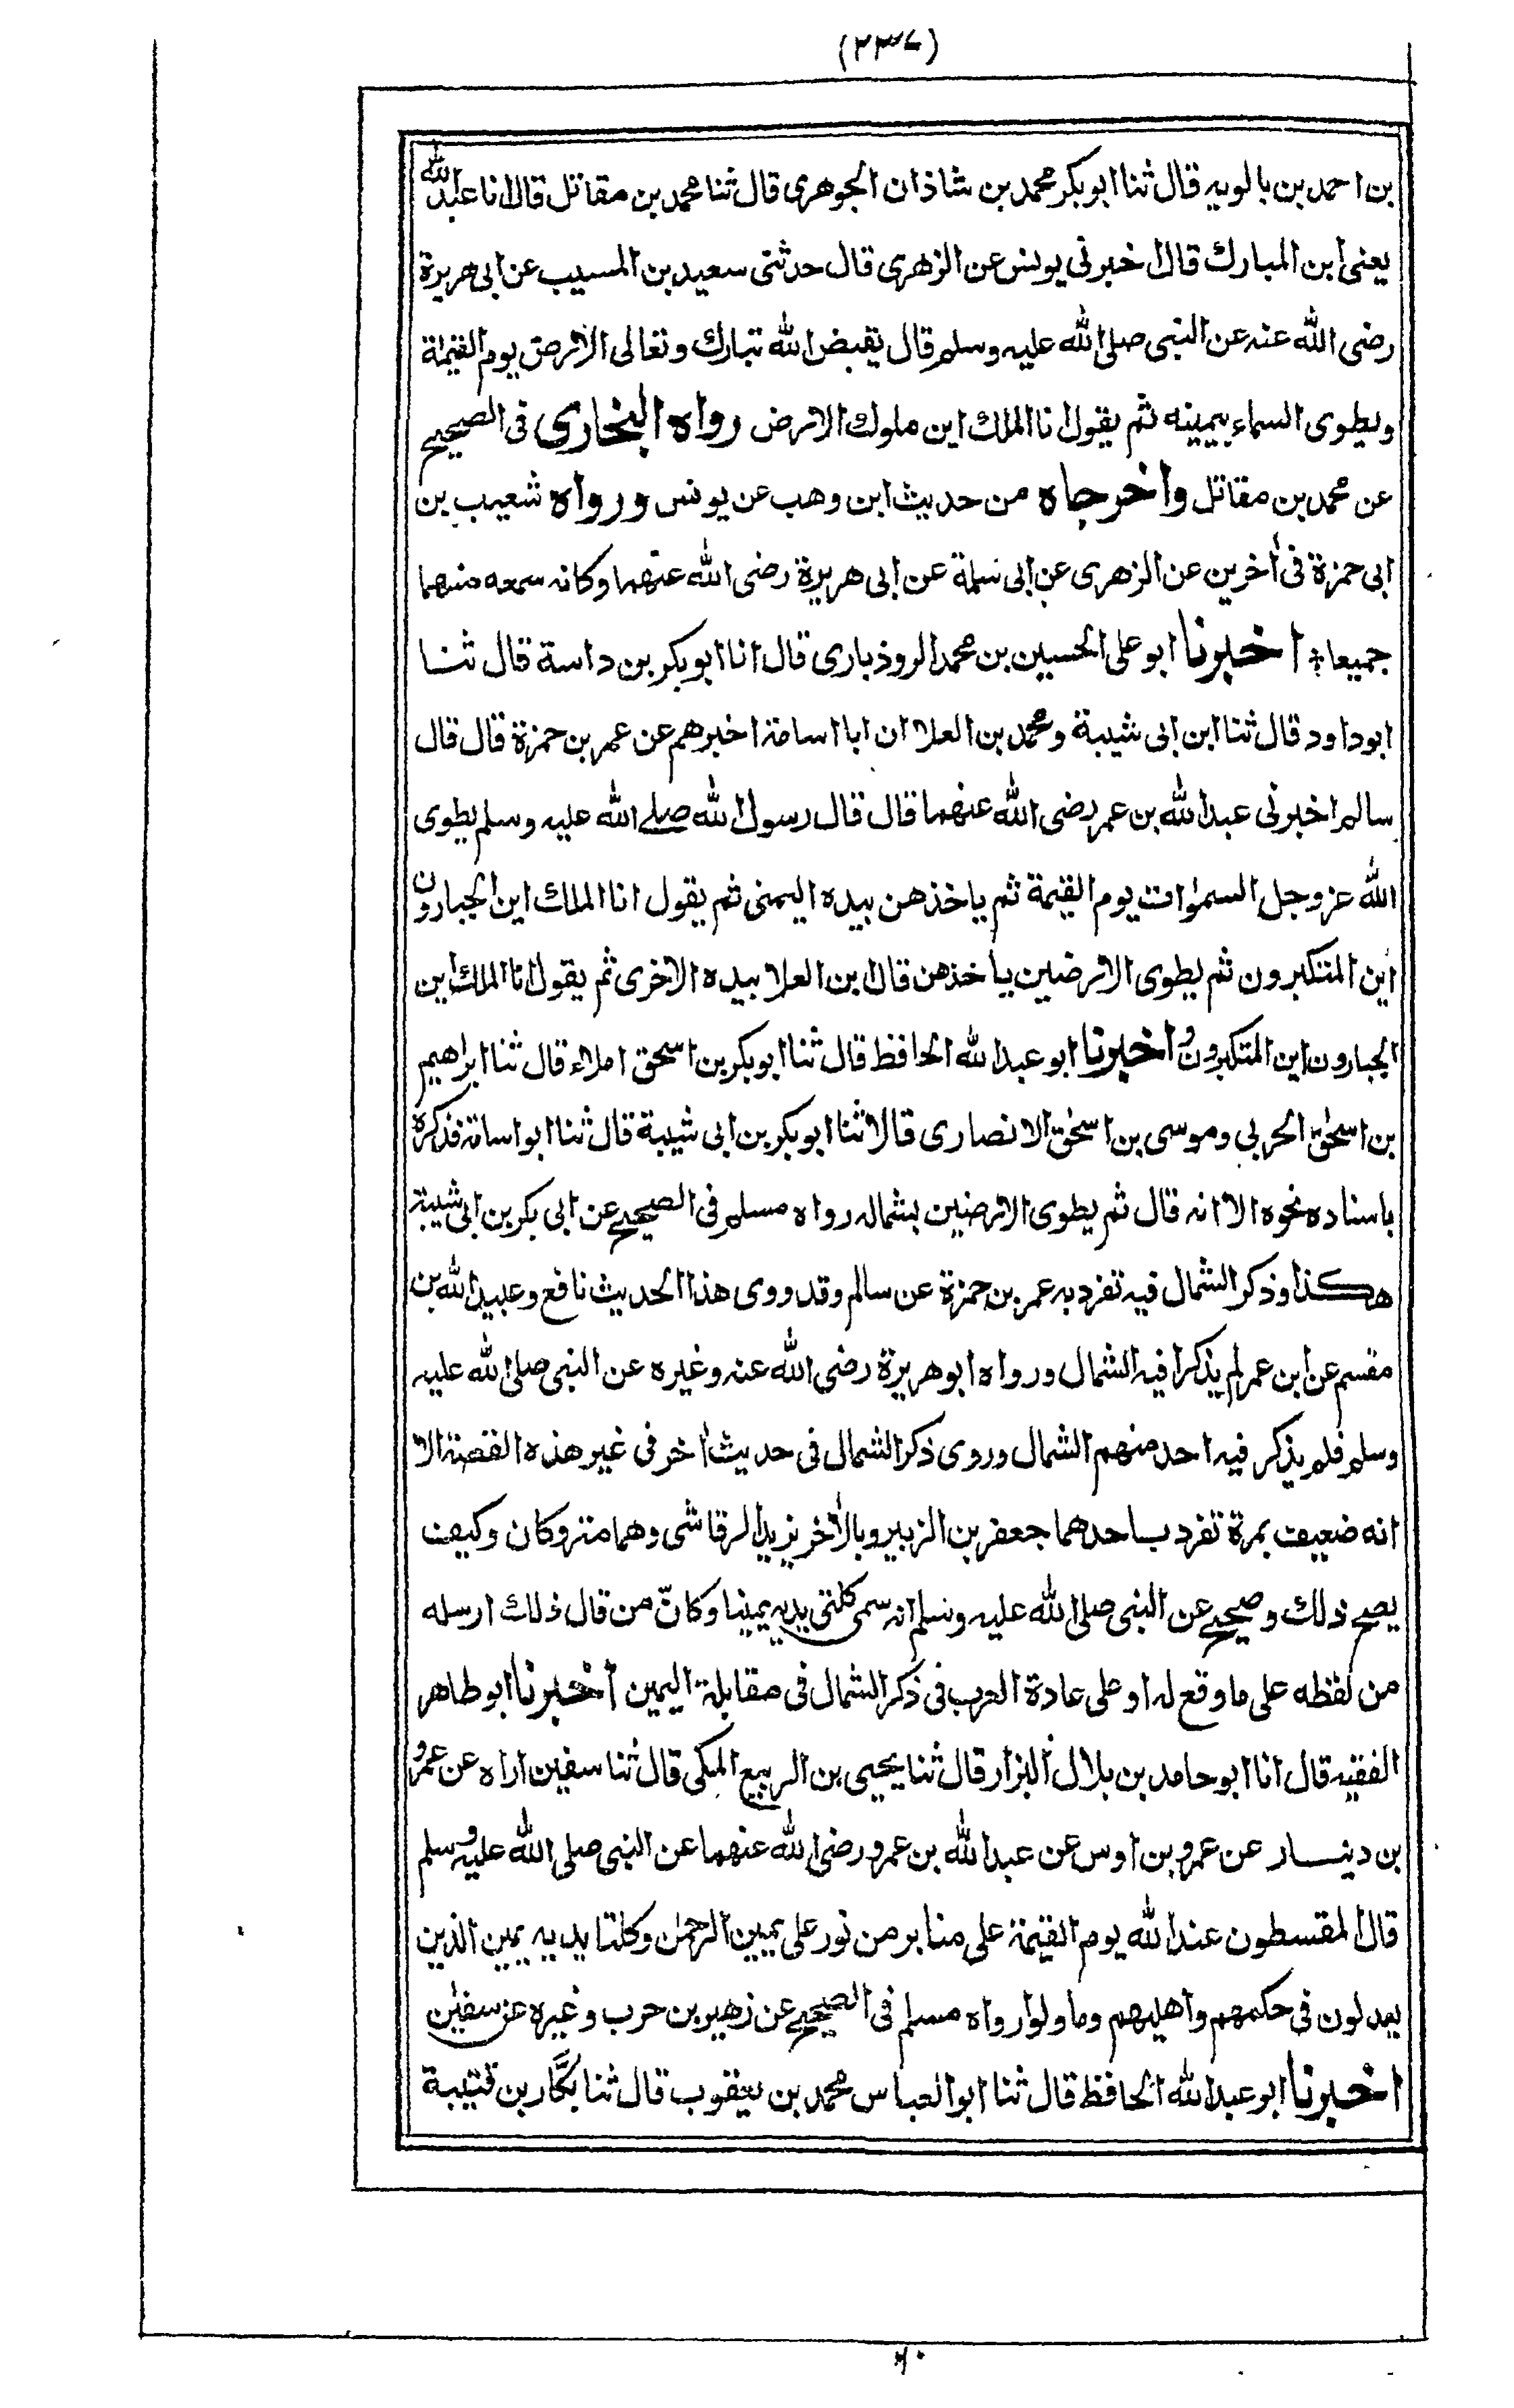 (٢٣٧)
بن احمد بن بالويه قال ثنا ابو بكر محمد بن شاذان الجوهرى قال ثنا محمد بن مقاتل قال انا عبد الله
يعنى ابن المبارك قال اخبرنى يونس عن الزهرى قال حدثنى سعيد بن المسيب عن ابى هريرة
رضى الله عنه عن النبى صلى الله عليه وسلم قال يقبض الله تبارك وتعالى الارض يوم القيمة
ويطوى السماء بيمينه ثم يقول انا الملك اين ملوك الارض رواه البخارى فى الصحيح
عن محمد بن مقاتل واخرجاه من حديث ابن وهب عن يونس ورواه شعيب بن
ابى حمزة فى أخرين عن الزهرى عن ابى سلمة عن ابى هريرة رضى الله عنهما وكانه سمعه منهما
جميعا ۞ اخبرنا ابو على الحسين بن محمد الروذبارى قال انا ابو بكر بن داسة قال ثنا
ابو داود قال ثنا ابن ابى شيبة ومحمد بن العلا ان ابا اسامة اخبرهم عن عمر بن حمزة قال قال
سالم اخبرنى عبد الله بن عمر رضى الله عنهما قال قال رسول الله صلے الله عليه وسلم يطوى
الله عز وجل السموات يوم القيمة ثم ياخذهن بيده اليمنى ثم يقول انا الملك اين الجبارون
أين المتكبرون ثم يطوى الارضين ياخذهن قال ابن العلا بيده الاخرى ثم يقول انا الملك اين
الجبارون اين المتكبرون اخبرنا ابو عبد الله الحافظ قال ثنا ابو بكر بن اسحق املاء قال ثنا ابراهيم
بن اسحق الحربي وموسى بن اسحق الانصارى قالا ثنا ابو بكر بن ابى شيبة قال ثنا ابو اسامة فذكره
باسناده نحوه الا انه قال ثم يطوى الارضين بشماله رواه مسلم فى الصحيح عن ابى بكر بن ابى شيبة
هكذا وذكر الشمال فيه تفرد به عمر بن حمزة عن سالم وقد روى هذا الحديث نافع وعبيد الله بن
مقسم عن ابن عمر لم يذكرا فيه الشمال ورواه ابو هريرة رضى الله عنه وغيره عن النبى صلى الله عليه
وسلم فلم يذكر فيه احد منهم الشمال وروى ذكر الشمال فى حديث أخر فى غير هذه القصة الا
انه ضعيف بمرة تفرد باحدهما جعفر بن الزبير وبالأخر يزيد الرقاشى وهما متروكان وكيف
يصح ذلك وصحيح عن النبى صلى الله عليه وسلم انه سمى كلتى يديه يمينا وكانّ من قال ذلك ارسله
من لفظه على ما وقع له او على عادة العرب فى ذكر الشمال فى مقابلة اليمين أخبرنا ابو طاهر
الفقيه قال انا ابو حامد بن بلال البزار قال ثنا يحيى بن الربيع المكى قال ثنا سفين اراه عن عمرو
بن دينار عن عمرو بن اوس عن عبد الله بن عمرو رضى الله عنهما عن النبى صلى الله عليه وسلم
قال المقسطون عند الله يوم القيمة على منابر من نور على يمين الرحمن وكلتا يديه يمين الذين
يعدلون فى حكمهم واهليهم وما ولوا رواه مسلم فى الصحيح عن زهير بن حرب وغيره عن سفين
اخبرنا ابو عبد الله الحافظ قال ثنا ابو العباس محمد بن يعقوب قال ثنا بكَّار بن قتيبة